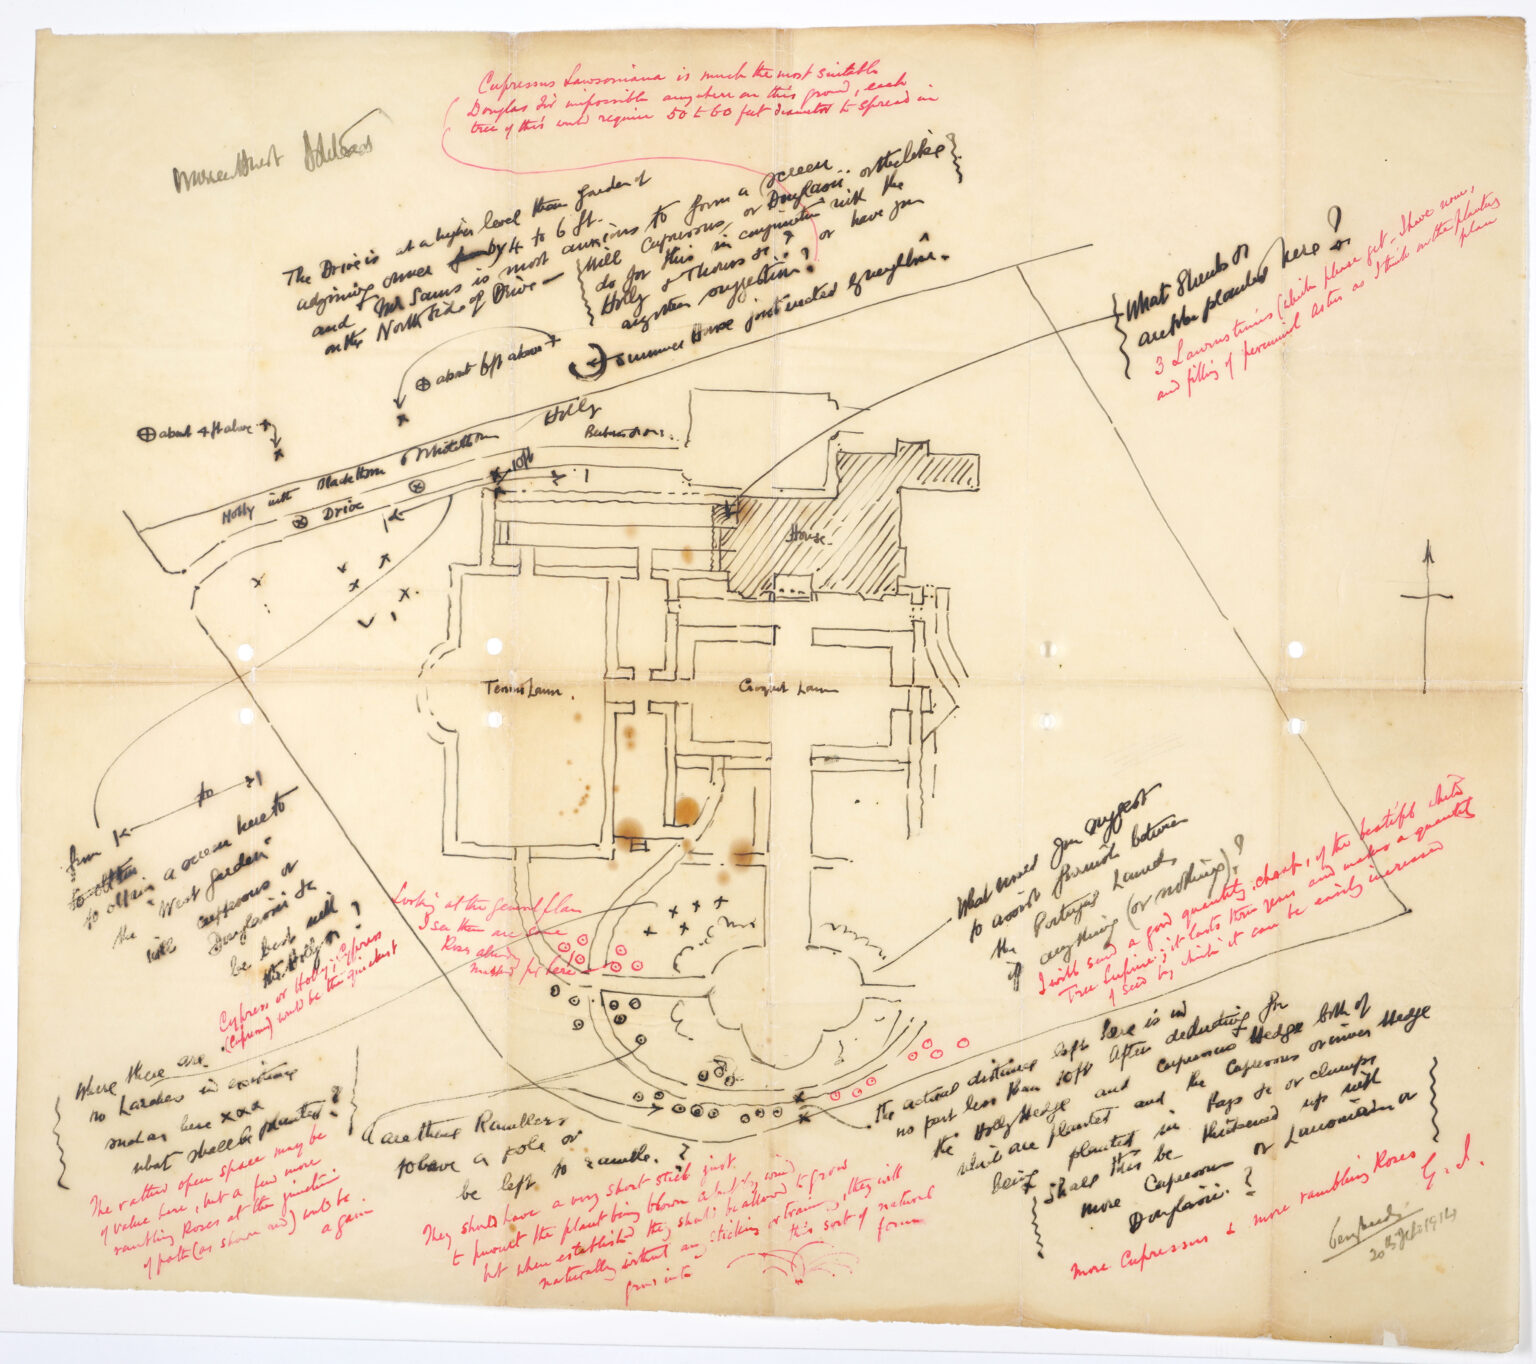 Cupressus Lawsoniana is much the most suitable
Douglas Fir impossible anywhere on this ground, each
tree of this would require 50 to 60 feet diameter to spread in
The Drive is at a higher level than garden of
adjoining owner by 4 to 6 ft.
and Mr Sams is most anxious to form a screen
on the North side of Drive —
Will Cupressus, or Douglasii or the like
do for this in conjunction with the
Holly & Thorns &c? or have you
any other suggestion?
Summer House just erected by neighbor.
about 6ft above
about 4ft above
What Shrubs or
are to be planted here?
3 Laurustinus (which please get - I have none,
and filling of perennial asters as I think on the planting
plan
Holly
Holly with Blackthorn & Whitethorn
Drive
10ft
House
Tennis Lawn.
Croquet Lawn
from
to
to obtain a screen here to
the "West Garden"
will cupressus or
Douglasii &c
be best with
the Holly or ?
Cypress or Holly; Cypress
(Cupressus) would be the quickest
Looking at the general plan
I see there are some
Roses already
marked for here
What would you suggest
to assist Bamboo between
the Portugal Laurels
if anything (or nothing)?
I will send a good quantity, cheap, of the beautiful white
Tree Lupine; it lasts three years and makes a quantity
of seed by which it can be easily increased
Where there are
no Larches in existing
such as here xxx
what shall be planted?
The rather open space may be
of value here, but a few more
rambling Roses at the junction
of path (as shown red) would be
again
are these Ramblers
to have a pole or
be left to ramble. ?
They should have a very short stick just
to prevent the plant being blown about by wind
but when established they should be allowed to grow
naturally without any sticking or training, they will
grow into
this sort of natural
form
The actual distance left here is in
no part less than 10ft after deducting for
the Holly Hedge and Cupressus Hedge both of
which are planted and the Cupressus or inner Hedge
being planted in
Shall this be thickened up with
more Cupressus or Lawsoniana or
Douglasii. ?
more Cupressus & more rambling Roses
G. J.
20th Feb 1914